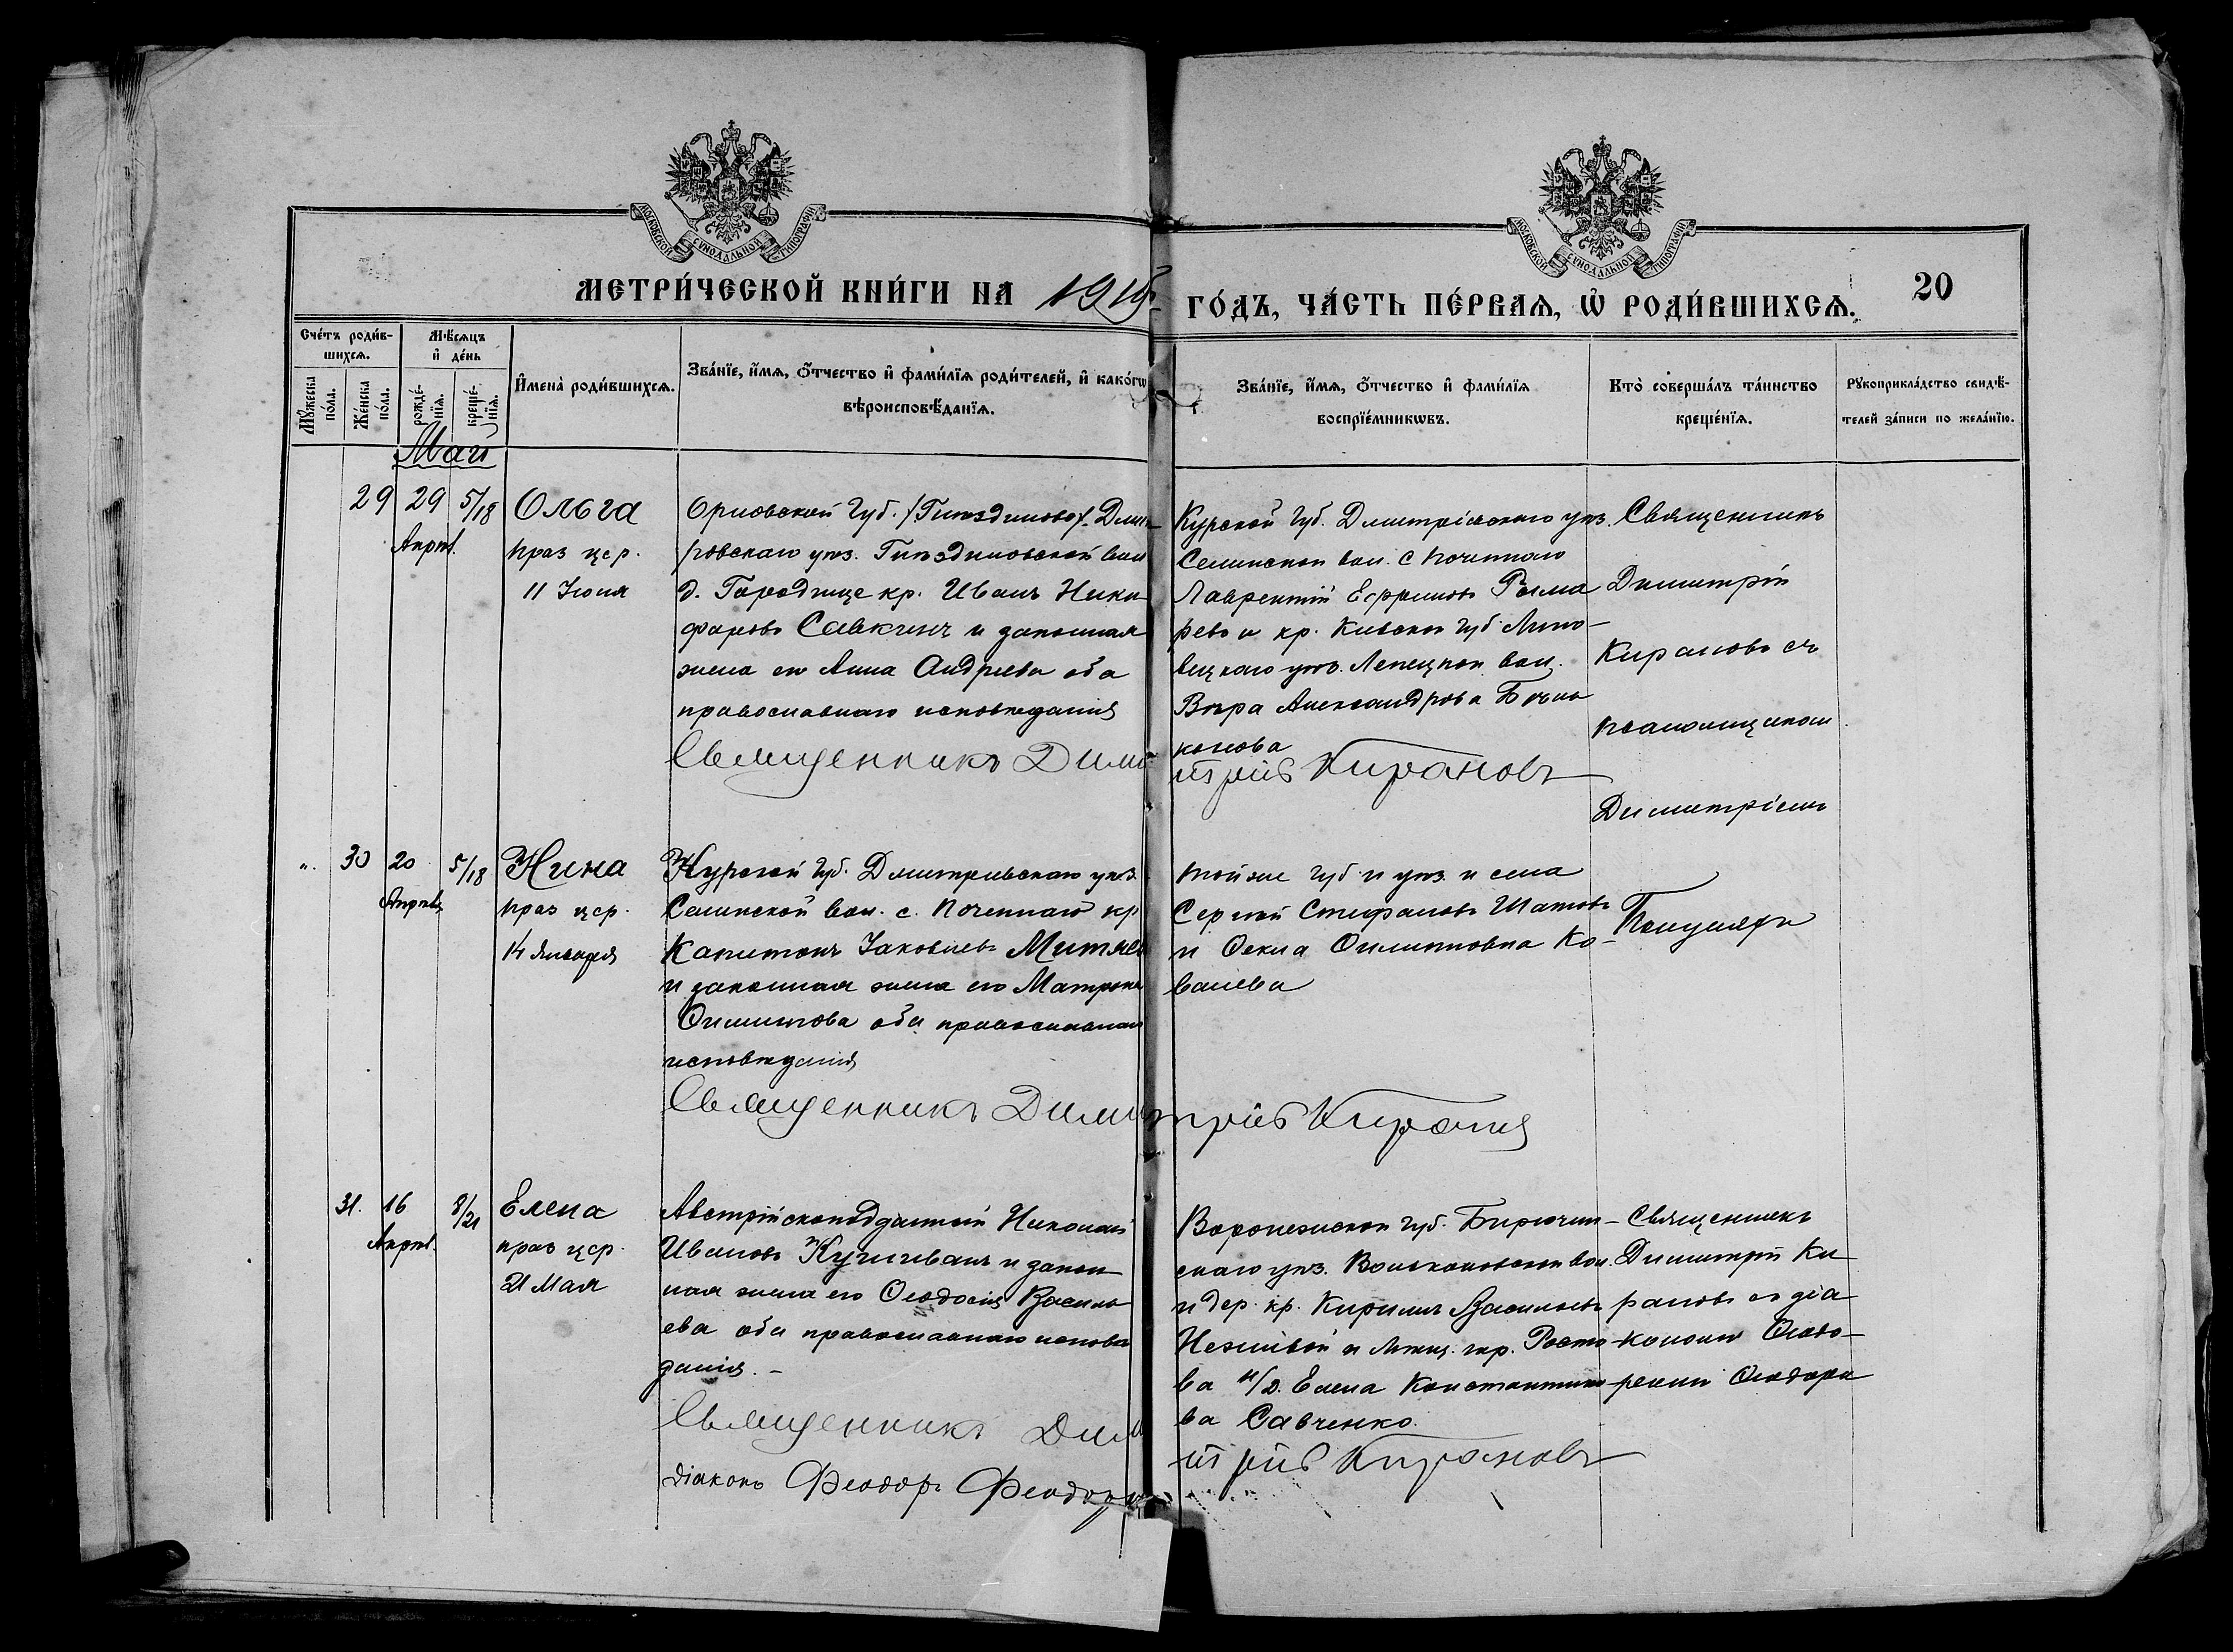 МОСКОВСКОЙ СѴНОДАЛЬНОЙ ТИПОГРАФІИ
МОСКОВСКОЙ СѴНОДАЛЬНОЙ ТИПОГРАФІИ
МЕТРИ́ЧЕСКОЙ КНИ́ГИ НА
ГО́ДЪ, ЧА́СТЬ ПЕ́РВАЯ, Ѡ РОДИ́ВШИХСЯ.
20
Сче́тъ роди́в-
шихся.
Мѣ́сяцъ
и де́нь
Мꙋ́жеска по́ла.
Же́нска по́ла.
рожде́-нїя.
креще́-нїя.
Имена̀ роди́вшихся.
Зва́нїе, и́мя, ѻ́тчество и фами́лїя роди́телей, и како́гѡ
вѣроисповѣ́данїя.
Зва́нїе, и́мя, ѻ́тчество и фами́лїя
воспрїе́мникѡвъ.
Кто̀ соверша́лъ та́инство
креще́нїя.
Рꙋкоприкла́дство свидѣ́-
телей за́писи по жела́нїю.
Май
29 29 5/18 Ольга
Апрѣл.
праз цер.
11 Іюня
Орловской Губ. Дмит-
ровскаго уѣз. Гнѣздиловской вол
д. Городище кр. Иванъ Ники-
форовъ Савкинъ и законная
жена его Анна Андреева оба
православнаго исповѣданія
Курской Губ. Дмитріевскаго уѣз.
Селинской вол. с Почепнаго
Лаврентій Ефремовъ
и кр. Кіевской Губ. Липо-
вецкаго уѣз. вол.
Вѣра Александрова
кова
Священникъ
Димитрій
Кирановъ съ
псаломщикомъ
Димитріемъ
Священникъ Димитрій Кирановъ
" 30 20 5/18 Нина
Апрѣль
праз цер.
14 Января
Курской Губ. Дмитріевскаго уѣз.
Селинской вол. с. Почепнаго кр
Капитонъ Іаковлевъ Митяев
и законная жена его Матрона
Филиппова оба православнаго
исповѣданія
той же губ и уѣз. и села
Сергѣй Стефановъ Шатовъ
и Ѳекла Филипповна Ко-
валева
Священникъ Димитрій
31. 16 8/21 Елена
Апрѣл.
праз цер.
21 Мая
Австрійскоподданный Николай
Ивановъ и закон-
ная жена его Ѳеодосія Василь-
ева оба православнаго исповѣ
данія. -
Воронежской губ. Бирючин-
скаго уѣз. вол.
и дер. кр. Кириллъ Васильевъ
и гр. Росто-
ва н/Д. Елена Константино-
ва Савченко.
Священникъ
Димитрій Ки-
рановъ съ діа-
кономъ Ѳеодо-
Священникъ Димитрій Кирановъ
діаконъ Феодоръ